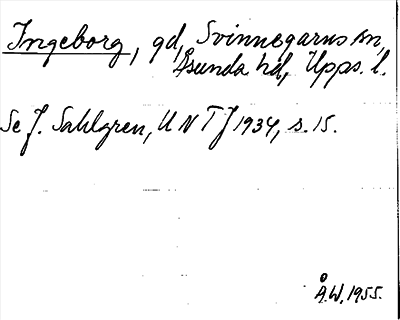 Ingeborg, gd, Svinnegarns sn,
Åsunda hd, Upps. l.
Se J. Sahlgren, UNTJ 1934, s. 15.
Å.W. 1955.